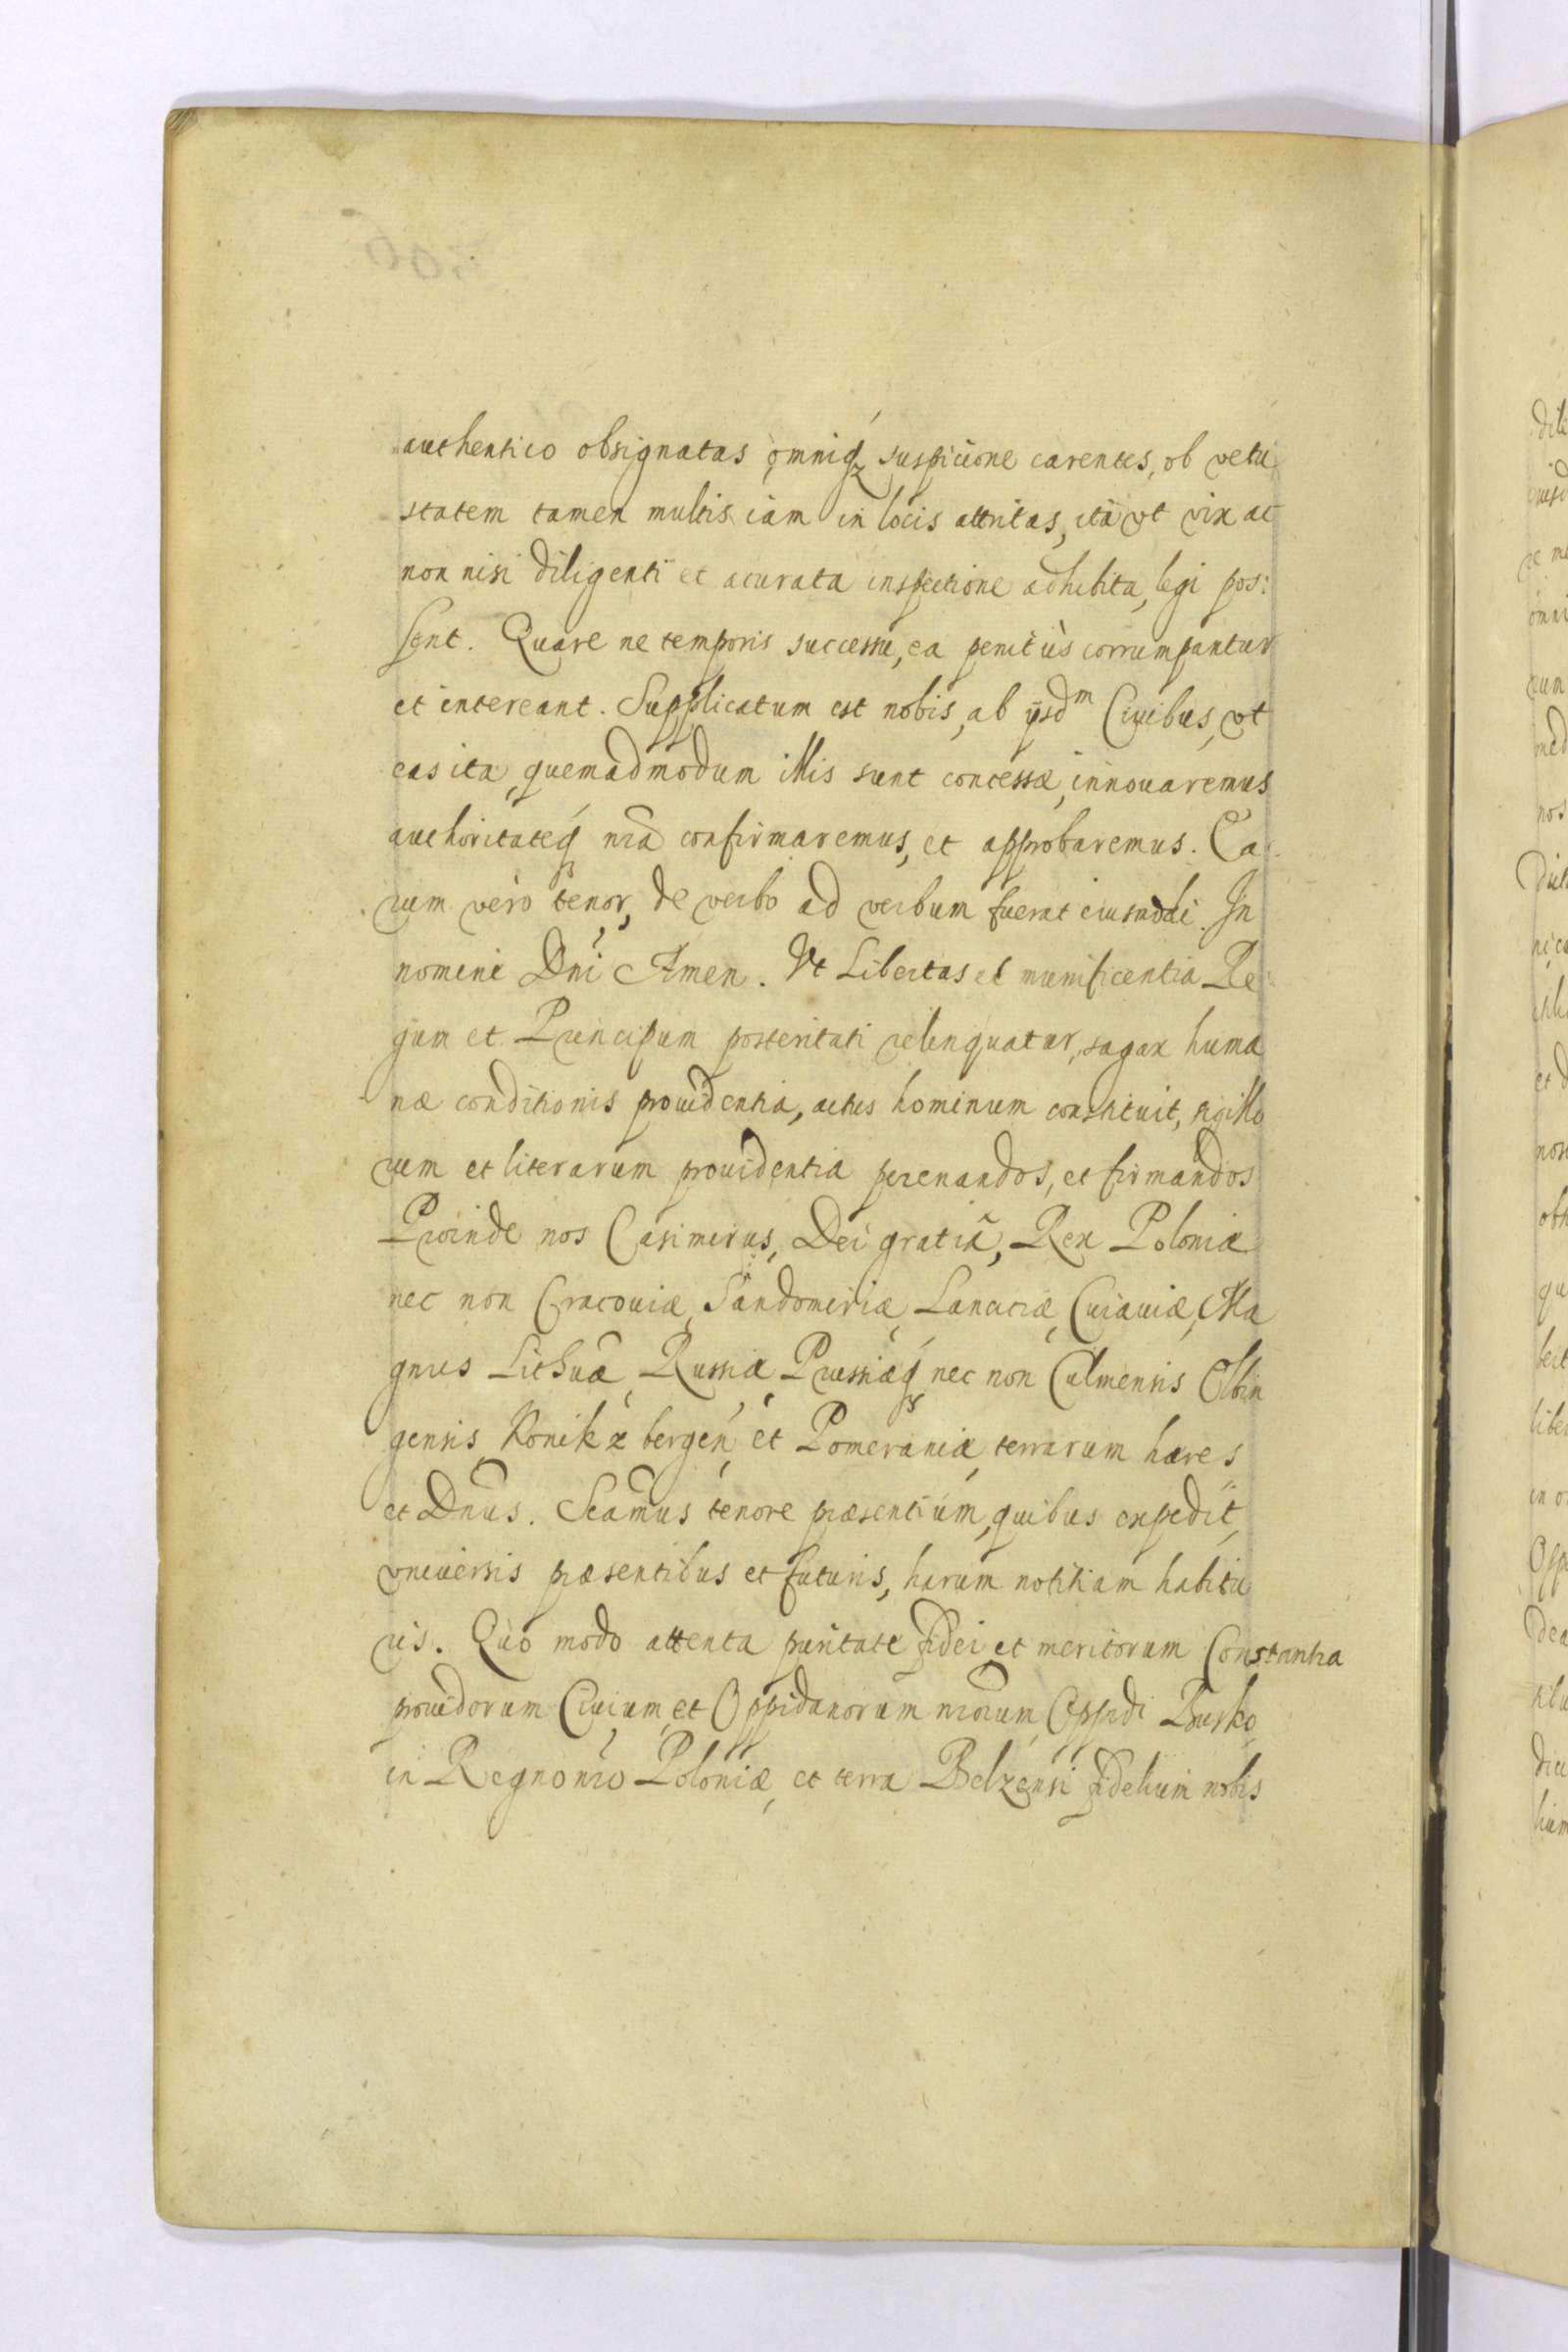 authentico obsignatas omniq́ꝫ suspicione carentes, ob vetu
statem tamen multis iam in locis attritas, ità vt vix ac
non nisi diligenti et acurata inspectione adhibita, legi pos:
sent. Quare ne temporis successu, ea penitùs corrumpantur
et intereant. Supplicatum est nobis, ab ijsdm Ciuibus, vt
eas ita, quemadmodum illis sunt concessæ, innouaremus
authoritateq́ nrã confirmaremus, et approbaremus. Ea
rum verò tenor, de verbo ad verbum fuerat eiusmodi. In
nomine Dni Amen. Vt Libertas et munificentia Re
gum et Principum posteritati relinquatur, sagax huma
næ conditionis prouidentia, actus hominum constituit, sigillo
rum et literarum prouidentia perenandos, et firmandos
Proinde nos Casimirus, Dei gratiâ, Rex Poloniæ
nec non Cracouiæ, Sandomiriæ, Lanciciæ, Cuiauiæ, Ma
gnus Lithuæ, Russiæ, Prussiæq́ nec non Culmensis Elbin
gensis Konikz bergen̄, et Pomeraniæ, terrarum hæres
et Dnus. Scamus tenore præsentium, quibus expedit,
vniuersis præsentibus et futuris, harum notitiam habitu
ris. Quo modo attenta puritate fidei et meritorum Constantia
prouidorum Ciuium et Oppidanorum nrorum, Oppidi Busko
in Regno nro Poloniæ, et terra Belzensi fidelium nobis